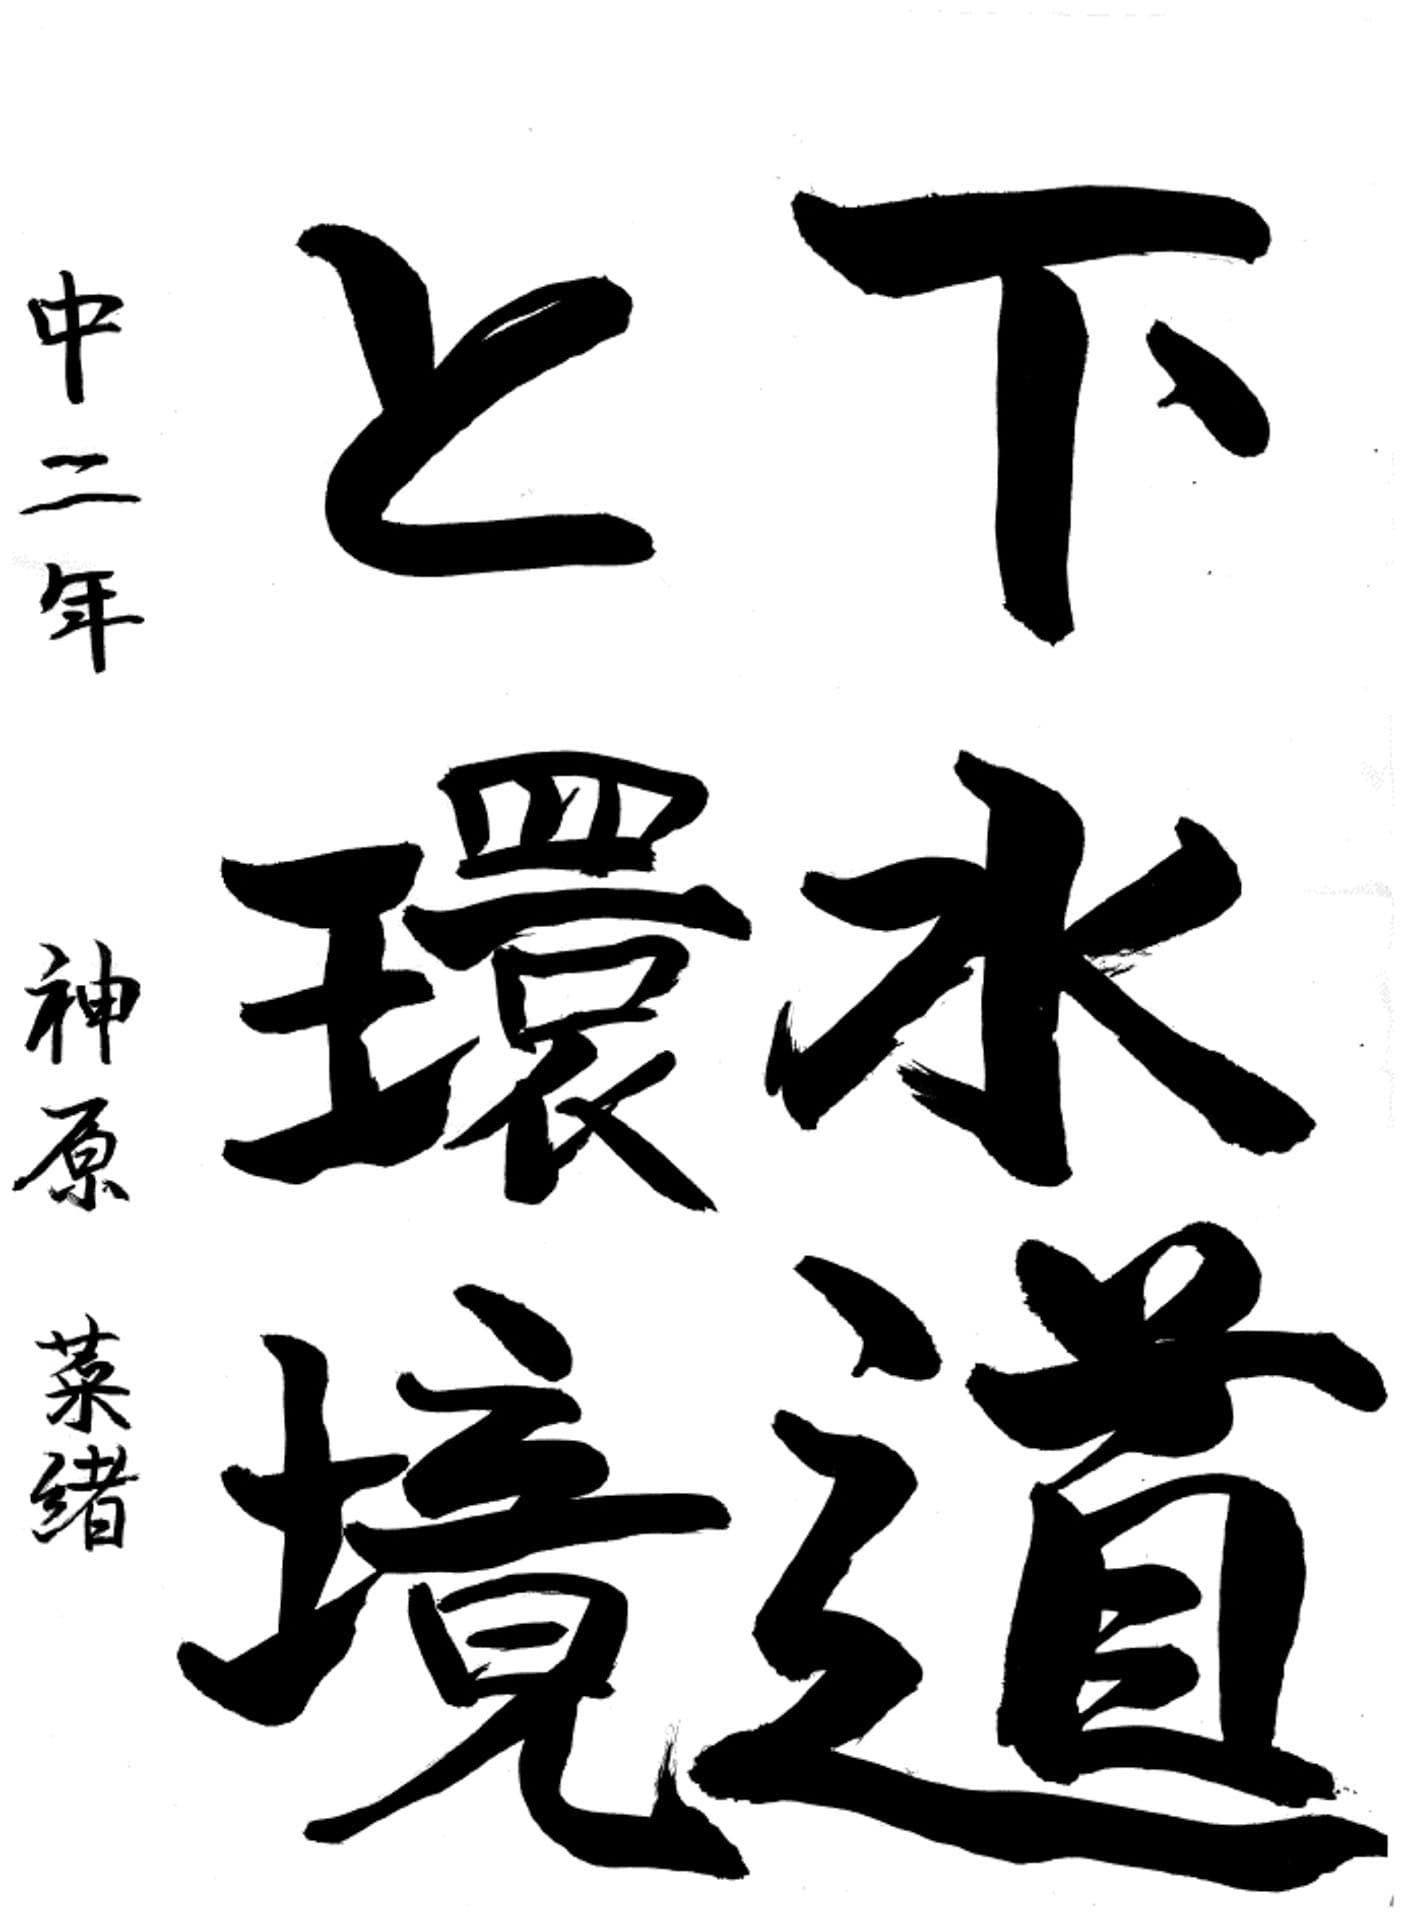 下水道
と環境
中二年 神原菜緒